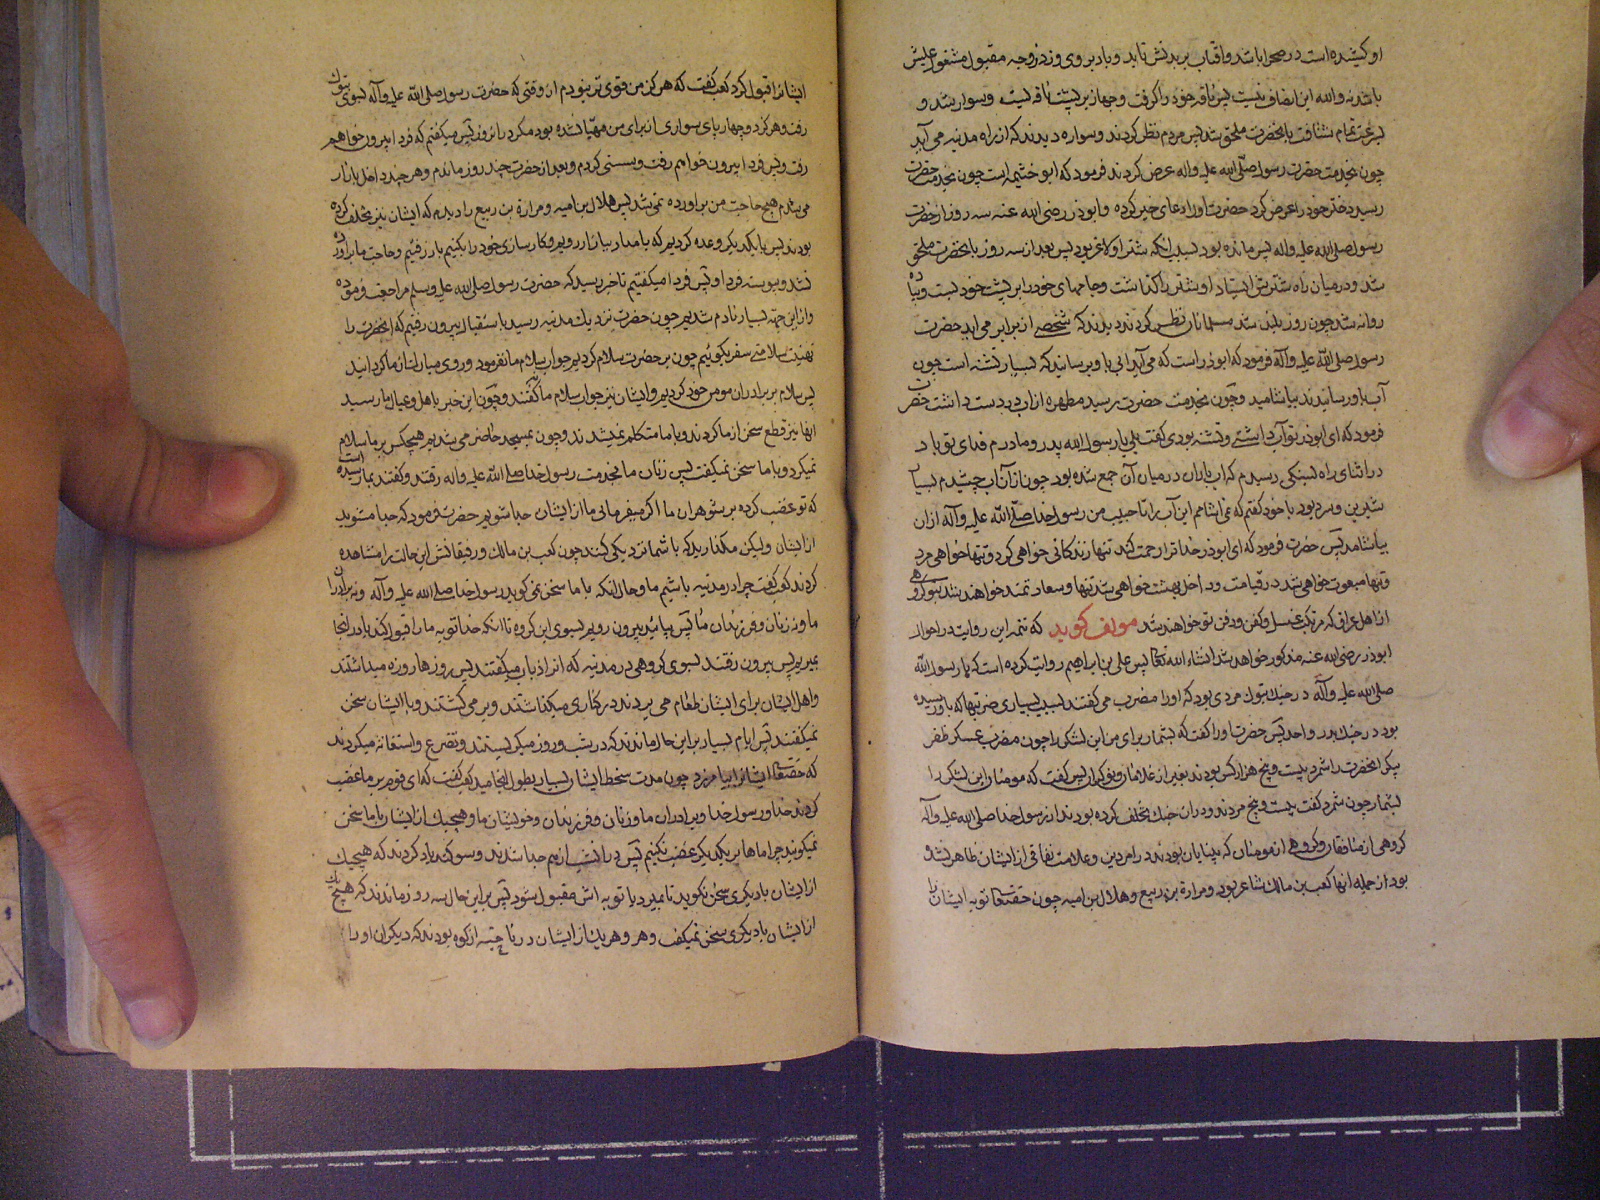 او کشیده است در صحرا باشد و آفتاب بر بدنش تابد و باد بر وی وزد زوجه مقبول مشغول عیش
باشد نه والله این انصاف نیست پس ناقه خود را گرفت و جهاز بر پشت ناقه بست و سوار شد و
بسرعت تمام شتافت تا بحضرت ملحق شد پس مردم نظر کردند و سواره دیدند که از راه مدینه می آید
چون بخدمت حضرت رسول صلی الله علیه واله عرض کردند فرمود که ابو خثیمه است چون بخدمت حضرت
رسید خود را عرض کرد حضرت او را دعای خیر کرده و ابوذر رضی الله عنه سه روز از حضرت
رسول صلی الله علیه واله پس مانده بود بسبب آنکه شتر او لاغر بود پس بعد از سه روز بآنحضرت ملحق
شد و در میان راه شترش ایستاد او شتر را گذاشت و جامهای خود را بر پشت خود بست و پیاده
روانه شد چون روز بلند شد مسلمانان نظر کردند دیدند که شخصی از برابر می آید حضرت
رسول صلی الله علیه وآله فرمود که ابوذر است که می آید آبی باو برسانید که بسیار تشنه است چون
آب باو رسانیدند بیاشامید و چون بخدمت حضرت رسید مطهره از آب در دست داشت حضرت
فرمود که ای ابوذر تو آب داشتی و تشنه بودی گفت بلی یا رسول الله پدر و مادرم فدای تو باد
در اثنای راه بسنگی رسیدم که آب باران در میان آن جمع شده بود چون از آن آب چشیدم بسیار
شیرین و سرد بود با خود گفتم که نمی آشامم این آب را تا حبیب من رسول خدا صلی الله علیه وآله از آن
بیاشامد پس حضرت فرمود که ای ابوذر خدا ترا رحمت کند تنها زندگانی خواهی کرد و تنها خواهی مرد
و تنها مبعوث خواهی شد در قیامت و داخل بهشت خواهی شد تنها و سعادتمند خواهند شد بتو گروهی
از اهل عراق که مرتکب غسل و کفن و دفن تو خواهند شد مولف گوید که تتمه این روایت در احوال
ابوذر رضی الله عنه مذکور خواهد شد انشاء الله تعالی پس علی بن ابراهیم روایت کرده است که با رسول الله
صلی الله علیه وآله در جنک تبوک مردی بود که او را مضرب می گفتند بسبب بسیاری ضربتها که باو رسیده
بود در جنک بدر و احد پس حضرت او را گفت که بشمار برای من این لشکر را چون مضرب عسکر ظفر
پیکر آنحضرت را شمرد بیست و پنج هزار کس بودند بغیر از غلامان پس گفت که مومنان این لشکر را
بشمار چون شمرد گفت بیست و پنج مردند و در آن جنک تخلف کرده بودند از رسول خدا صلی الله علیه وآله
گروهی از منافقان و گروهی از مومنان که بینایان بودند در امر دین و علامت نفاقی از ایشان ظاهر نشده
بود از جمله آنها کعب بن مالک شاعر بود و مرارة بن ربیع و هلال بن امیه چون حقتعالی توبه ایشان را
ایشانرا قبول کرد کعب گفت که هرگز من قوی تر نبودم از وقتی که حضرت رسول صلی الله علیه وآله بسوی تبوک
رفت و هرگز دو چهارپای سواری از برای من مهیا نشده بود مگر در آنروز پس میگفتم که فردا بیرون خواهم
رفت و پس فردا بیرون خواهم رفت و سستی کردم و بعد از حضرت چند روز ماندم و هر چند داخل بازار
می شدم هیچ حاجت من برآورده نمی شد پس هلال بن امیه و مرارة بن ربیع را دیدم که ایشان نیز تخلف کرده
بودند پس با یکدیگر وعده کردیم که بامداد ببازار رویم و کارسازی خود را بکنیم ببازار رفتیم و حاجت ما برآورده
نشد و پیوسته فردا و پس فردا میگفتیم تا خبر رسید که حضرت رسول صلی الله علیه وسلم مراجعت فرموده
و از این جهة بسیار نادم شدیم چون حضرت نزدیک مدینه رسید باستقبال بیرون رفتیم که آنحضرت را
تهنیت سلامتی سفر بگوئیم چون بر حضرت سلام کردیم جواب سلام ما نفرمود و روی مبارک از ما گردانید
پس سلام بر برادران مومن خود کردیم و ایشان نیز جواب سلام ما نگفتند و چون این خبر باهل و عیال ما رسید
آنها نیز قطع سخن از ما کردند و با ما متکلم نمیشدند و چون بمسجد حاضر می شدیم هیچکس بر ما سلام
نمیکرد و با ما سخن نمیگفت پس زنان ما بخدمت رسول خدا صلی الله علیه واله رفتند و گفتند بما رسیده است
که تو غضب کرده بر شوهران ما اگر میفرمائی ما از ایشان جدا شویم حضرت فرمود که جدا مشوید
از ایشان ولیکن مگذارید که با شما نزدیکی کنند چون کعب بن مالک و رفیقانش این حالت را مشاهده
کردند کعب گفت چرا در مدینه باشیم ما و حال آنکه با ما سخن نمی گوید رسول خدا صلی الله علیه وآله و نه برادران
ما و نه زنان و فرزندان ما پس بیائید بیرون رویم بسوی این کوه تا آنکه خدا توبه ما را قبول کند یا در آنجا
بمیریم پس بیرون رفتند بسوی کوهی در مدینه که آنرا ذباب میگفتند پس روزها روزه میداشتند
و اهل ایشان برای ایشان طعام می بردند در کناری میگذاشتند و بر می گشتند و با ایشان سخن
نمیگفتند پس ایام بسیار بر این حال ماندند که در شب و روز میگریستند و تضرع و استغاثه میکردند
که حقتعالی ایشانرا بیامرزد چون مدت سخط ایشان بسیار بطول انجامید کعب گفت که ای قوم بر ما غضب
کردند خدا و رسول خدا و برادران ما و زنان و فرزندان و خویشان ما و هیچیک از ایشان با ما سخن
نمیگویند چرا ماها بر یکدیگر غضب نکنیم پس در آنشب از هم جدا شدند و سوگند یاد کردند که هیچیک
از ایشان با دیگری سخن نگوید تا بمیرد یا توبه اش مقبول شود پس بر این حال سه روز ماندند که هیچ یک
از ایشان با دیگری سخن نمیگفت و هر یک از ایشان در ناحیه از کوه بودند که دیگران او را